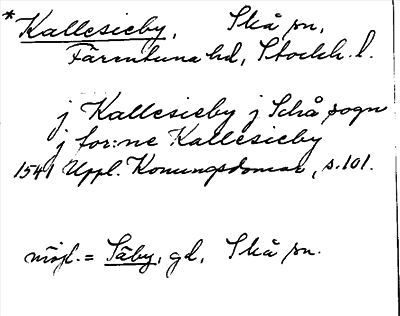 *Kallesieby, Skå sn,
Färentuna hd, Stockh. l.
j Kallesieby j Schå sogn
j for:ne Kallesieby
1541 Uppl. Konungsdomar, s. 101.
möjl. = Säby, gd, Skå sn.